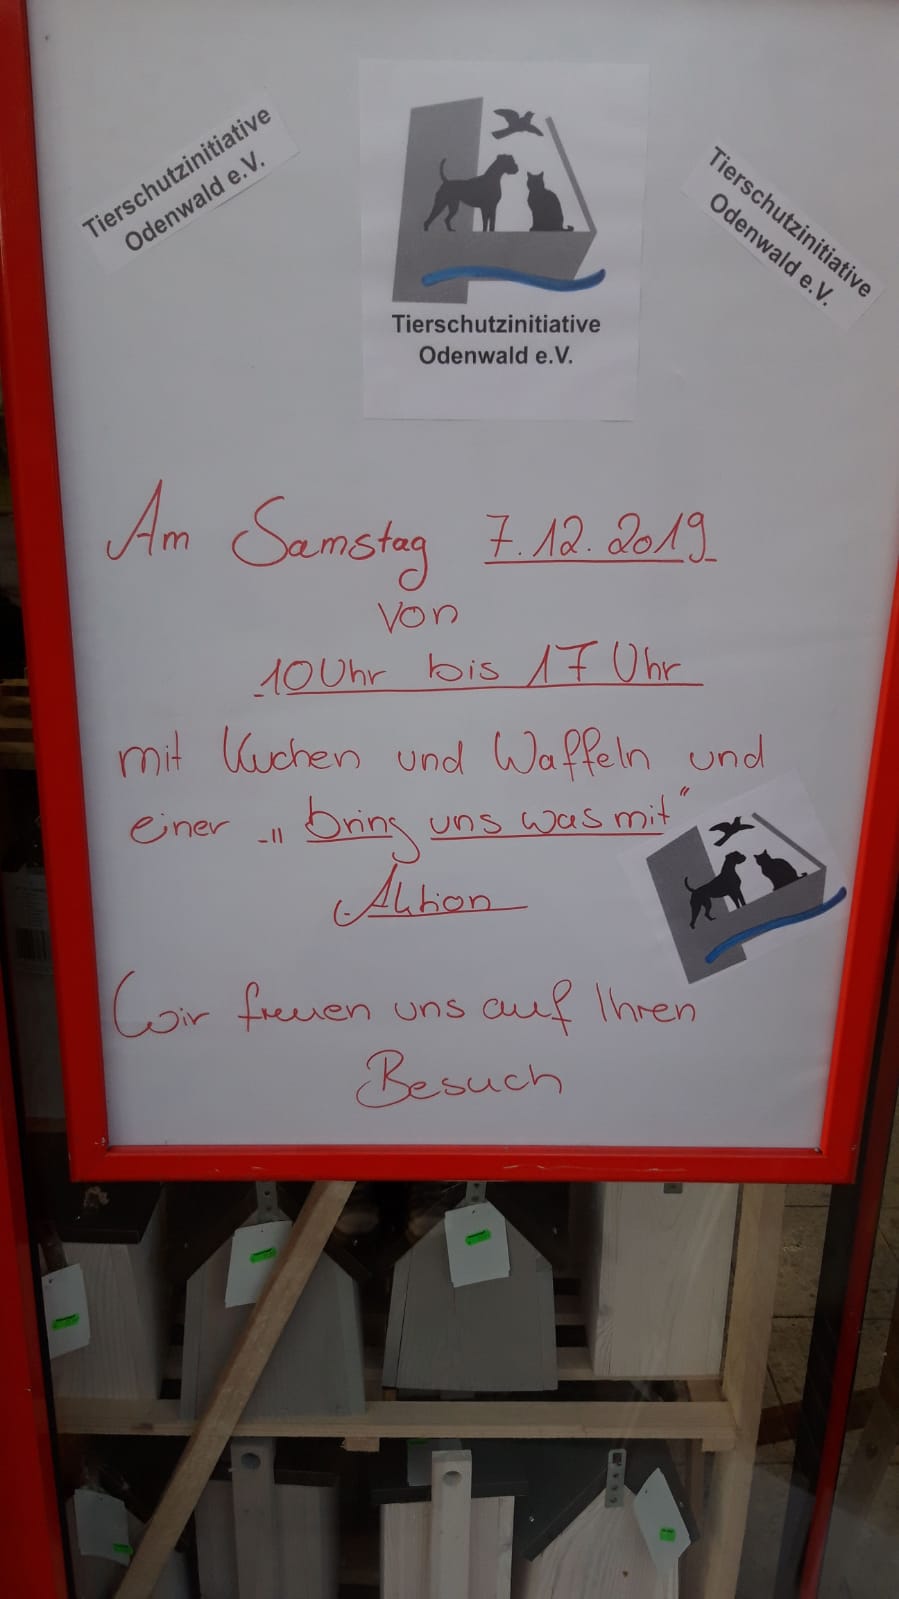 Tierschutzinitiative
Odenwald e.V.
Tierschutzinitiative
Odenwald e.V.
Tierschutzinitiative
Odenwald e.V.
Am Samstag 7.12.2019
von
10 Uhr bis 17 Uhr
mit Kuchen und Waffeln und
einer „bring uns was mit“
Aktion
Wir freuen uns auf Ihren
Besuch